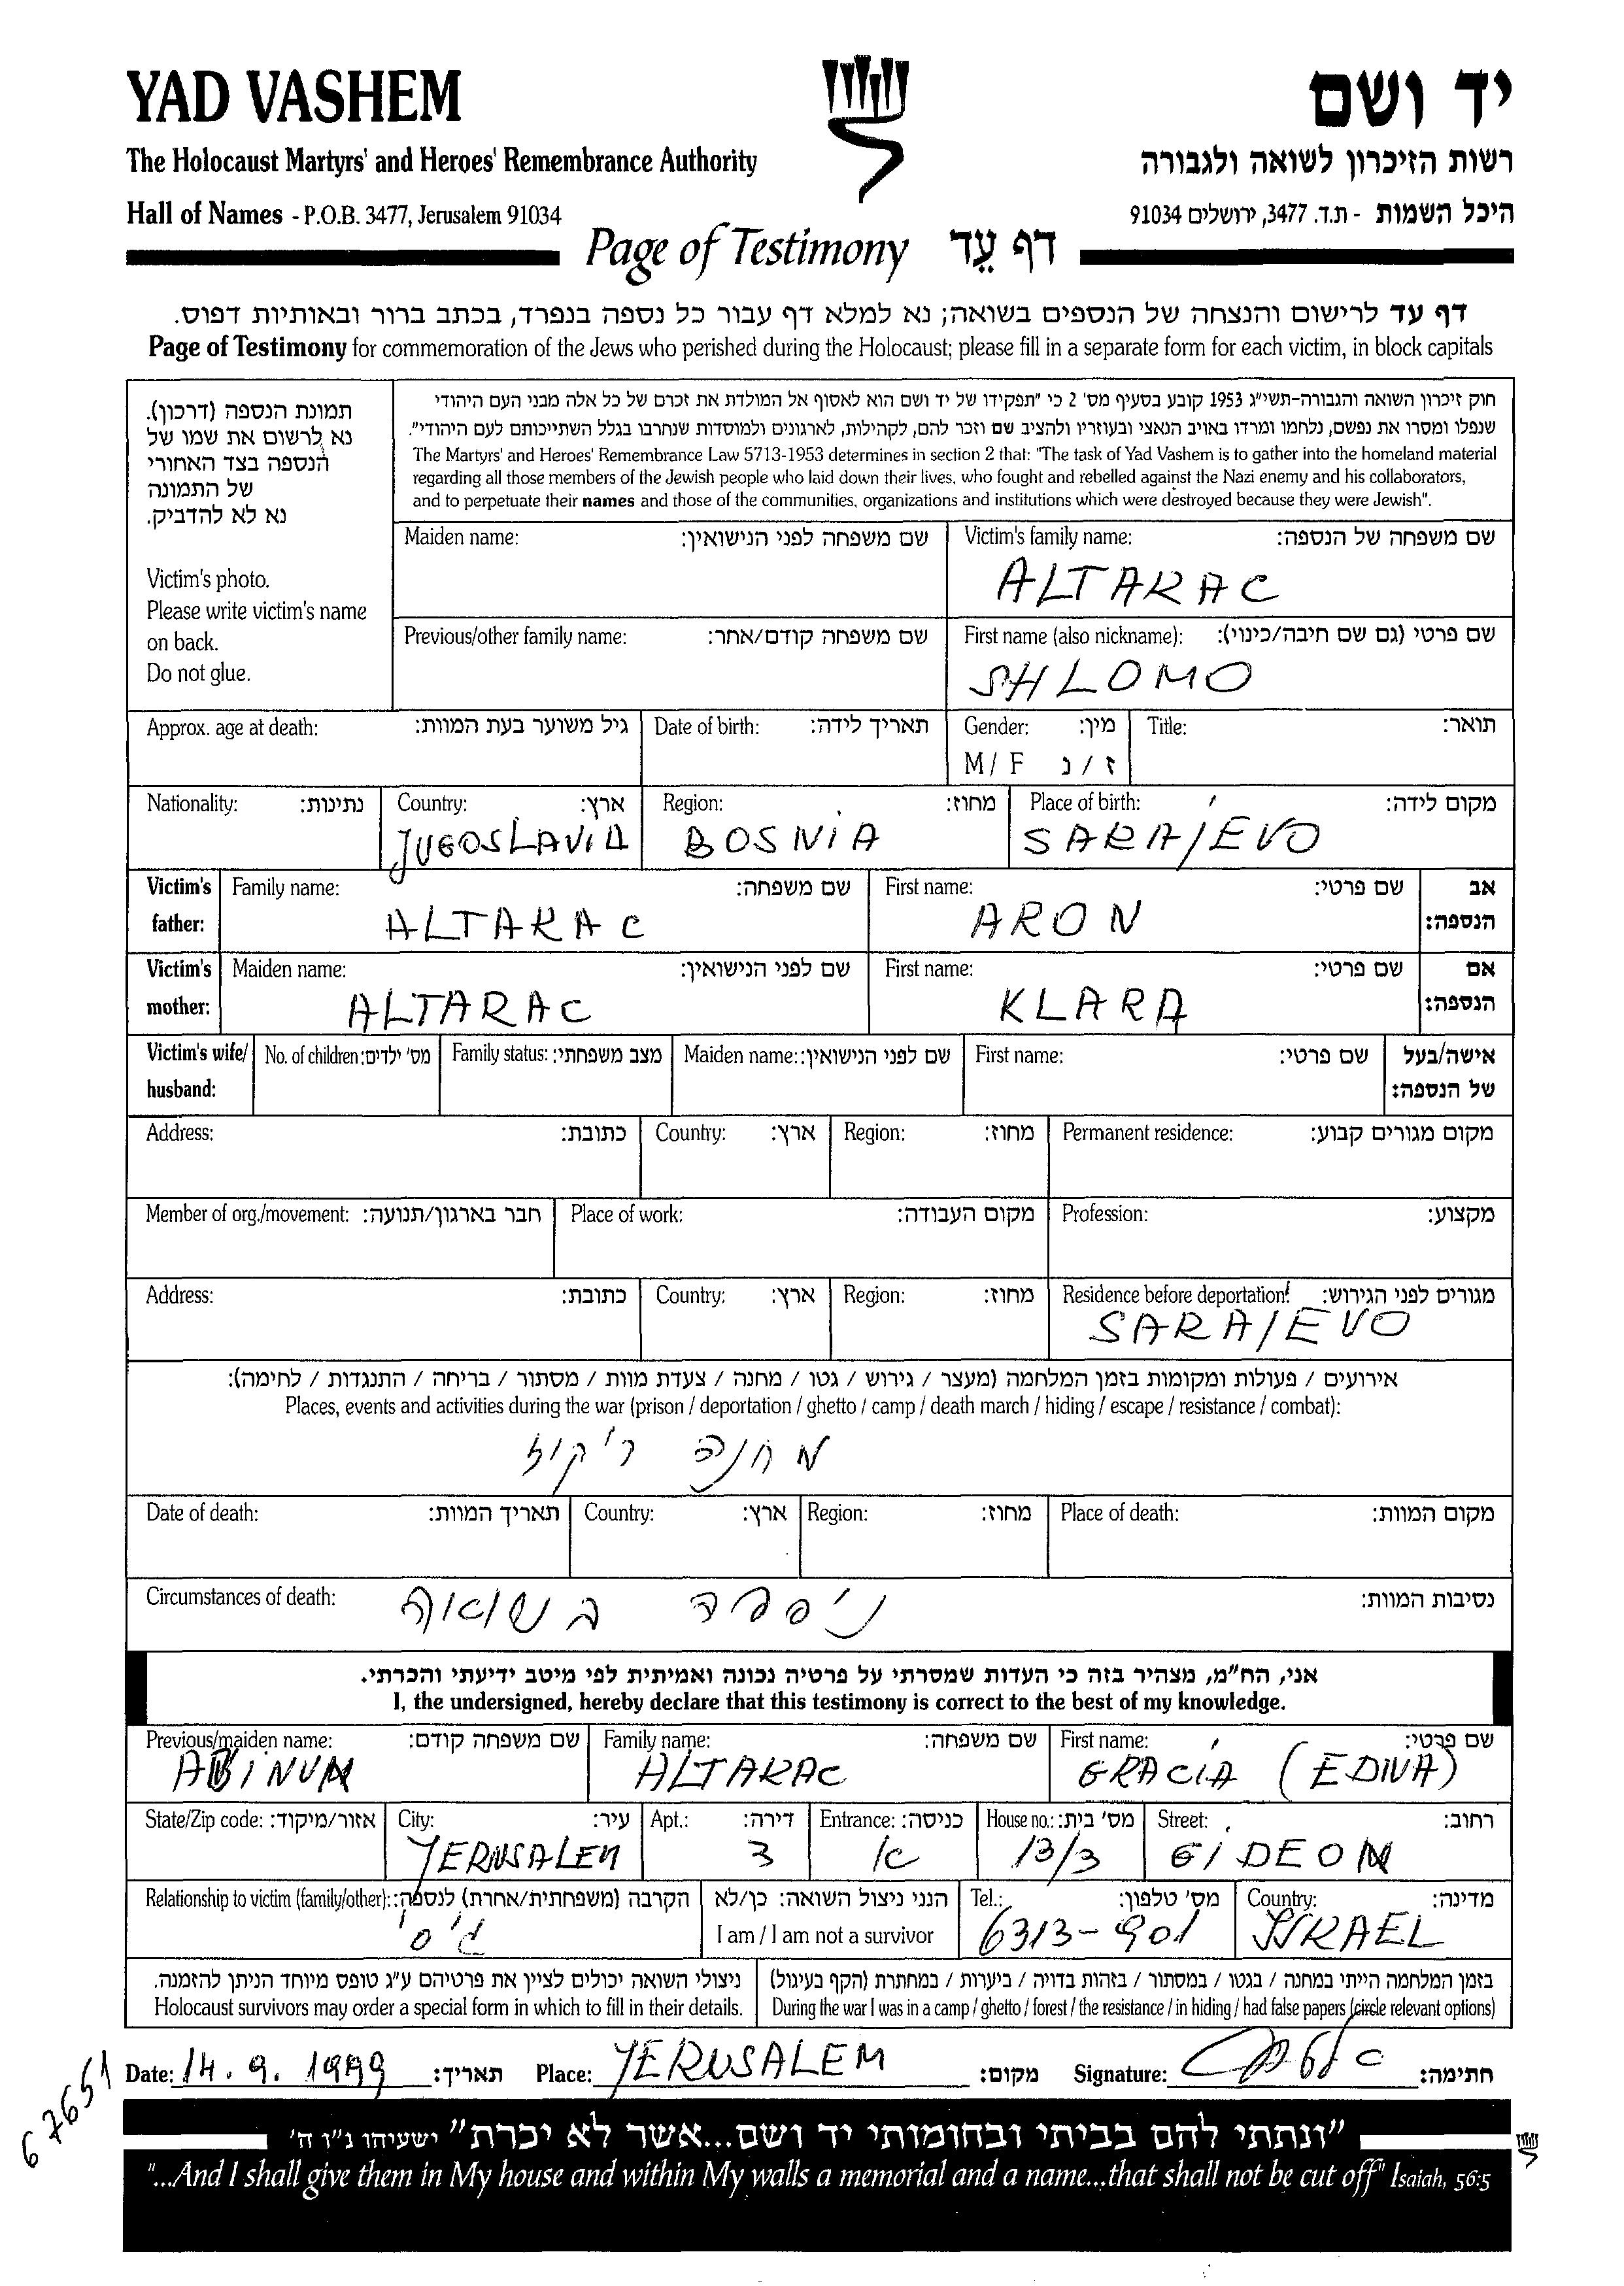 YAD VASHEM
יד ושם
The Holocaust Martyrs' and Heroes' Remembrance Authority
רשות הזיכרון לשואה ולגבורה
Hall of Names - P.O.B. 3477, Jerusalem 91034
היכל השמות - ת.ד. 3477, ירושלים 91034
Page of Testimony דף עֵד
דף עד לרישום והנצחה של הנספים בשואה; נא למלא דף עבור כל נספה בנפרד, בכתב ברור ובאותיות דפוס.
Page of Testimony for commemoration of the Jews who perished during the Holocaust; please fill in a separate form for each victim, in block capitals
תמונת הנספה (דרכון).
נא לרשום את שמו של
הנספה בצד האחורי
של התמונה
נא לא להדביק.
Victim's photo.
Please write victim's name
on back.
Do not glue.
חוק זיכרון השואה והגבורה-תשי"ג 1953 קובע בסעיף מס' 2 כי "תפקידו של יד ושם הוא לאסוף אל המולדת את זכרם של כל אלה מבני העם היהודי
שנפלו ומסרו את נפשם, נלחמו ומרדו באויב הנאצי ובעוזריו ולהציב שם וזכר להם, לקהילות, לארגונים ולמוסדות שנחרבו בגלל השתייכותם לעם היהודי".
The Martyrs' and Heroes' Remembrance Law 5713-1953 determines in section 2 that: "The task of Yad Vashem is to gather into the homeland material
regarding all those members of the Jewish people who laid down their lives, who fought and rebelled against the Nazi enemy and his collaborators,
and to perpetuate their names and those of the communities, organizations and institutions which were destroyed because they were Jewish".
Maiden name: שם משפחה לפני הנישואין:
Victim's family name: שם משפחה של הנספה:
ALTARAC
Previous/other family name: שם משפחה קודם/אחר:
First name (also nickname): שם פרטי (גם שם חיבה/כינוי):
SHLOMO
Approx. age at death: גיל משוער בעת המוות:
Date of birth: תאריך לידה:
Gender: מין:
M / F ז / נ
Title: תואר:
Nationality: נתינות:
Country: ארץ:
JUGOSLAVIA
Region: מחוז:
BOSNIA
Place of birth: מקום לידה:
SARAJEVO
Victim's father:
Family name: שם משפחה:
ALTARAC
First name: שם פרטי:
ARON
אב הנספה:
Victim's mother:
Maiden name: שם לפני הנישואין:
ALTARAC
First name: שם פרטי:
KLARA
אם הנספה:
Victim's wife/ husband:
No. of children: מס' ילדים:
Family status: מצב משפחתי:
Maiden name: שם לפני הנישואין:
First name: שם פרטי:
אישה/בעל של הנספה:
Address: כתובת:
Country: ארץ:
Region: מחוז:
Permanent residence: מקום מגורים קבוע:
Member of org./movement: חבר בארגון/תנועה:
Place of work: מקום העבודה:
Profession: מקצוע:
Address: כתובת:
Country: ארץ:
Region: מחוז:
Residence before deportation: מגורים לפני הגירוש:
SARAJEVO
אירועים / פעולות ומקומות בזמן המלחמה (מעצר / גירוש / גטו / מחנה / צעדת מוות / מסתור / בריחה / התנגדות / לחימה):
Places, events and activities during the war (prison / deportation / ghetto / camp / death march / hiding / escape / resistance / combat):
מחנה ריקוז
Date of death: תאריך המוות:
Country: ארץ:
Region: מחוז:
Place of death: מקום המוות:
Circumstances of death: נסיבות המוות:
ניספה בשואה
אני, הח"מ, מצהיר בזה כי העדות שמסרתי על פרטיה נכונה ואמיתית לפי מיטב ידיעתי והכרתי.
I, the undersigned, hereby declare that this testimony is correct to the best of my knowledge.
Previous/maiden name: שם משפחה קודם:
ABINUN
Family name: שם משפחה:
ALTARAC
First name: שם פרטי:
GRACIA (EDNA)
State/Zip code: אזור/מיקוד:
City: עיר:
YERUSALEM
Apt.: דירה:
3
Entrance: כניסה:
א
House no.: מס' בית:
13/3
Street: רחוב:
GIDEON
Relationship to victim (family/other): הקרבה (משפחתית/אחרת) לנספה:
גיס
הנני ניצול השואה: כן/לא
I am / I am not a survivor
Tel.: מס' טלפון:
6313-901
Country: מדינה:
ISRAEL
ניצולי השואה יכולים לציין את פרטיהם ע"ג טופס מיוחד הניתן להזמנה.
Holocaust survivors may order a special form in which to fill in their details.
בזמן המלחמה הייתי במחנה / בגטו / במסתור / בזהות בדויה / ביערות / במחתרת (הקף בעיגול)
During the war I was in a camp / ghetto / forest / the resistance / in hiding / had false papers (circle relevant options)
Date: 14.9.1999 תאריך:
Place: YERUSALEM מקום:
Signature: חתימה:
67651
"ונתתי להם בביתי ובחומותי יד ושם...אשר לא יכרת" ישעיהו נ"ו ה'
"...And I shall give them in My house and within My walls a memorial and a name...that shall not be cut off" Isaiah, 56:5